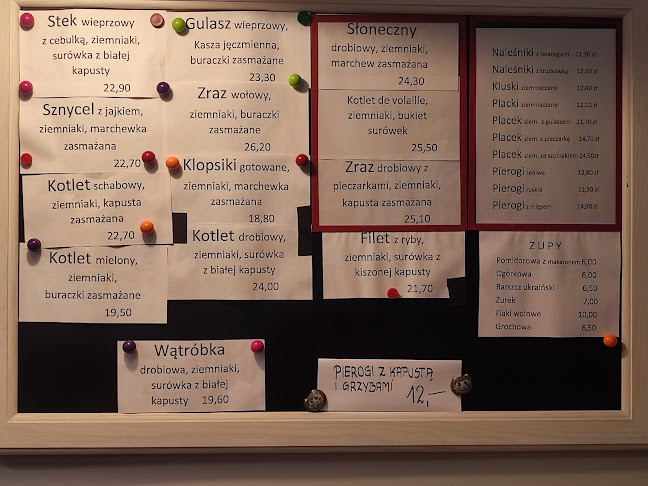 Stek wieprzowy
z cebulką, ziemniaki,
surówka z białej
kapusty
22,90
Sznycel z jajkiem,
ziemniaki, marchewka
zasmażana
22,70
Kotlet schabowy,
ziemniaki, kapusta
zasmażana
22,70
Kotlet mielony,
ziemniaki,
buraczki zasmażane
19,50
Gulasz wieprzowy,
Kasza jęczmienna,
buraczki zasmażane
23,30
Zraz wołowy,
ziemniaki, buraczki
zasmażane
26,20
Klopsiki gotowane,
ziemniaki, marchewka
zasmażana
18,80
Kotlet drobiowy,
ziemniaki, surówka
z białej kapusty
24,00
Słoneczny
drobiowy, ziemniaki,
marchew zasmażana
24,30
Kotlet de volaille,
ziemniaki, bukiet
surówek
25,50
Zraz drobiowy z
pieczarkami, ziemniaki,
kapusta zasmażana
25,10
Filet z ryby,
ziemniaki, surówka z
kiszonej kapusty
21,70
Naleśniki z twarogiem 11,90 zł
Naleśniki z truskawką 12,60 zł
Kluski ziemniaczane 12,40 zł
Placki ziemniaczane 12,10 zł
Placek ziem. z gulaszem 21,70 zł
Placek ziem. z pieczarką 14,70 zł
Placek ziem. ze szpinakiem 14,50zł
Pierogi leniwe 12,80 zł
Pierogi ruskie 12,30 zł
Pierogi z mięsem 14,90 zł
ZUPY
Pomidorowa z makaronem 6,00
Ogórkowa 6,00
Barszcz ukraiński 6,50
Żurek 7,00
Flaki wołowe 10,00
Grochowa 6,50
Wątróbka
drobiowa, ziemniaki,
surówka z białej
kapusty 19,60
PIEROGI Z KAPUSTĄ
I GRZYBAMI 12,-